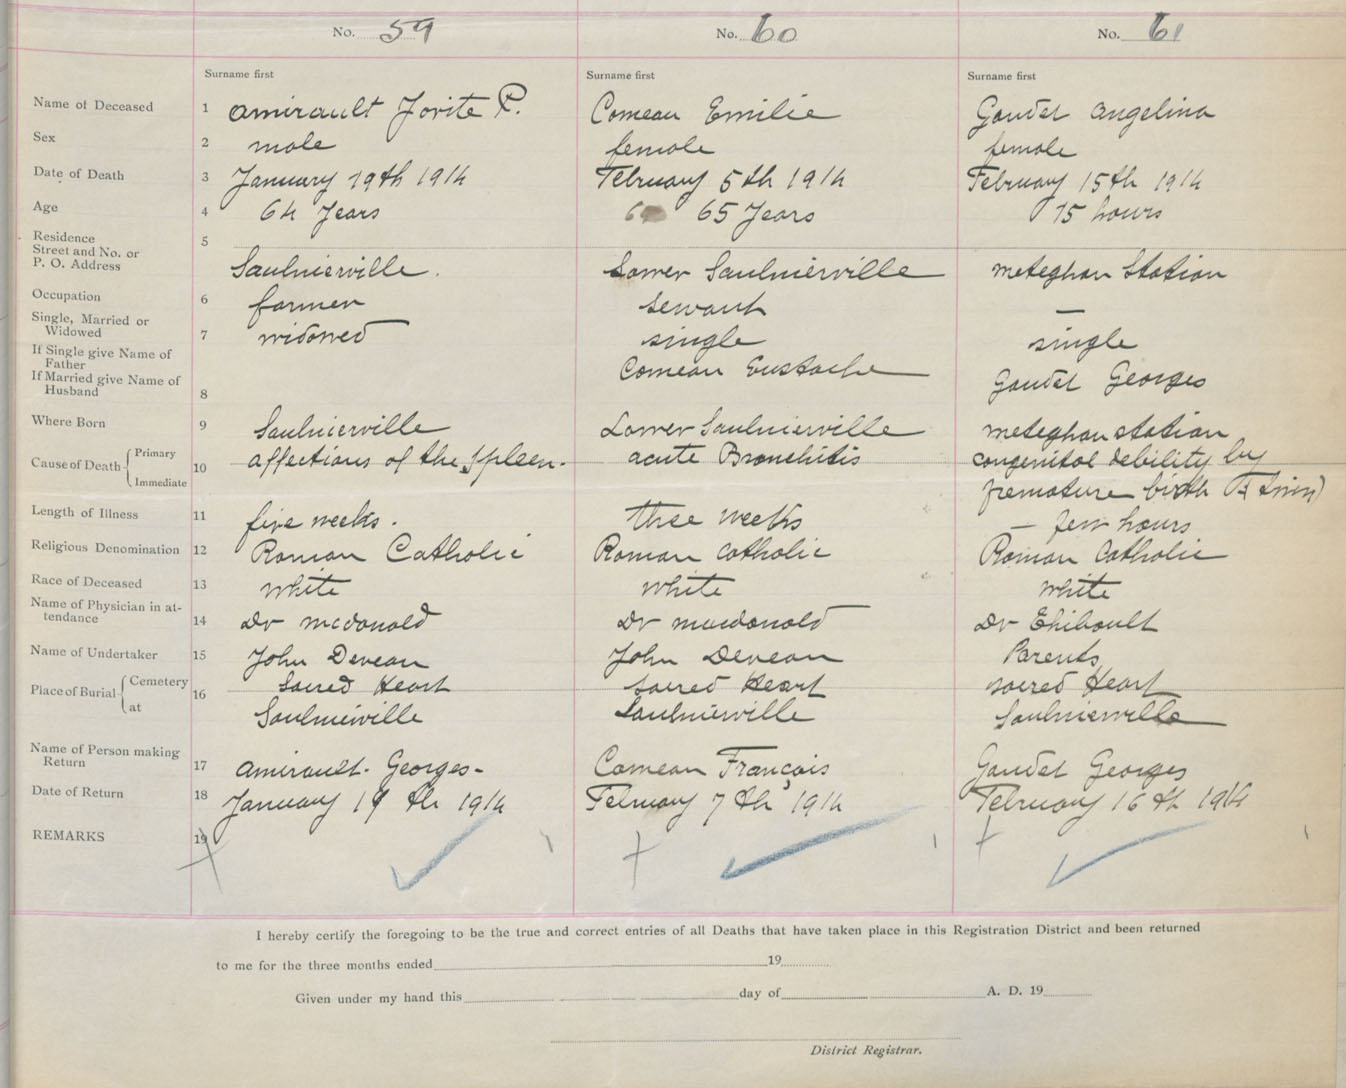 No. 59 No. 60 No. 61
Surname first Surname first Surname first
Name of Deceased 1 Amirault Jovite P. Comeau Emilie Gaudet Angelina
Sex 2 male female female
Date of Death 3 January 19th 1914 February 5th 1914 February 15th 1914
Age 4 64 Years 65 Years 15 hours
Residence 5
Street and No. or
P. O. Address Saulnierville. Lower Saulnierville Meteghan Station
Occupation 6 farmer servant —
Single, Married or
Widowed 7 widowed single single
If Single give Name of
Father Comeau Eustache Gaudet Georges
If Married give Name of
Husband 8
Where Born 9 Saulnierville Lower Saulnierville Meteghan Station
Cause of Death Primary 10 affections of the Spleen. acute Bronchitis congenital debility by
Immediate premature birth (twin)
Length of Illness 11 five weeks. three weeks — few hours
Religious Denomination 12 Roman Catholic Roman Catholic Roman Catholic
Race of Deceased 13 white white white
Name of Physician in at-
tendance 14 Dr McDonald Dr Macdonald Dr Thibault
Name of Undertaker 15 John Deveau John Deveau Parents
Place of Burial Cemetery 16 Sacred Heart Sacred Heart Sacred Heart
at Saulnierville Saulnierville Saulnierville
Name of Person making
Return 17 Amirault. Georges- Comeau François Gaudet Georges
Date of Return 18 January 19th 1914 February 7th 1914 February 16th 1914
REMARKS 19
I hereby certify the foregoing to be the true and correct entries of all Deaths that have taken place in this Registration District and been returned
to me for the three months ended 19
Given under my hand this day of A. D. 19
District Registrar.